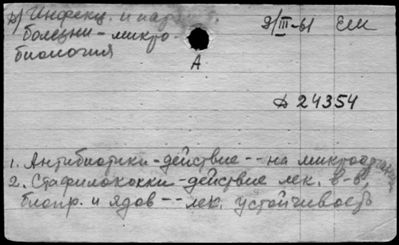 р) Инфекц. и пар. 9/III-61 Ем
болезни - микро-
биология
А
Д 24354
1. Антибиотики - действие -- на микроорганизмы
2. Стафилококки - действие лек. в-в,
биопр. и ядов -- лек. устойчивость